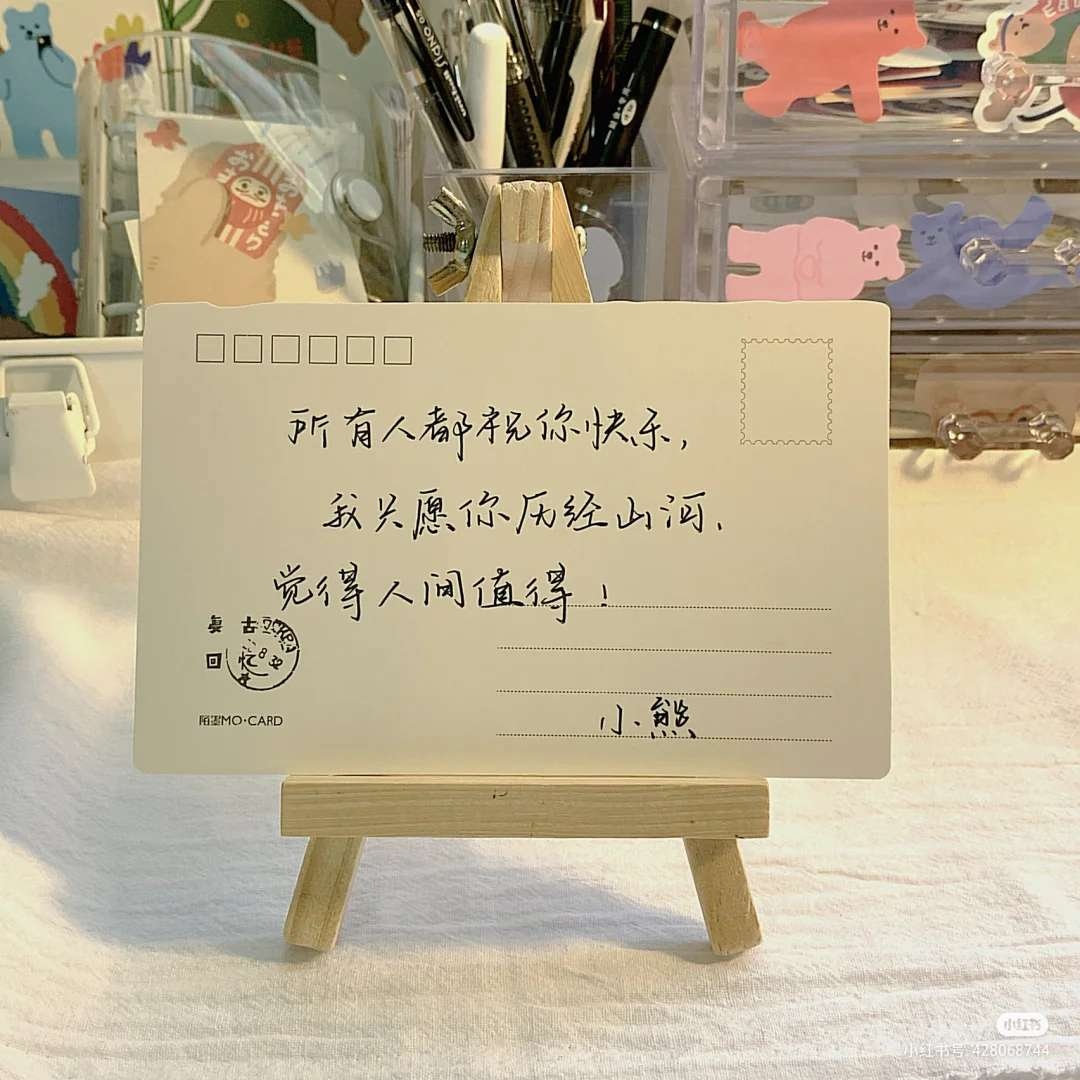 所有人都祝你快乐,
我只愿你历经山河.
觉得人间值得!
小熊
回忆
MO·CARD
小红书
小红书号:428068744